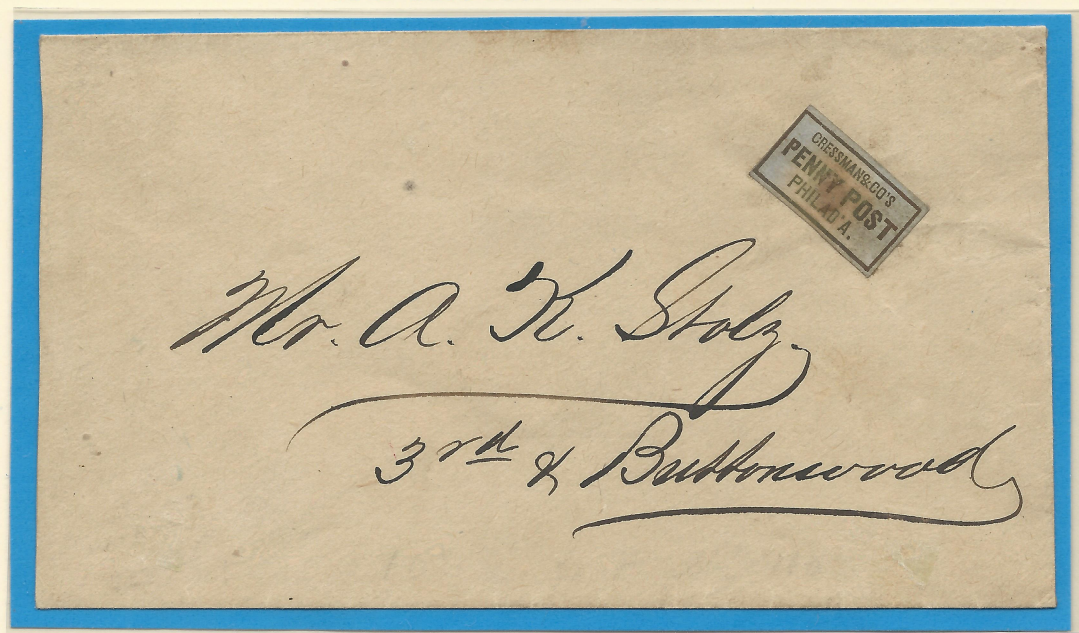 CRESSMAN & CO'S
PENNY POST
PHILAD'A.
Mr. A. K. Stolz.
3rd & Buttonwood